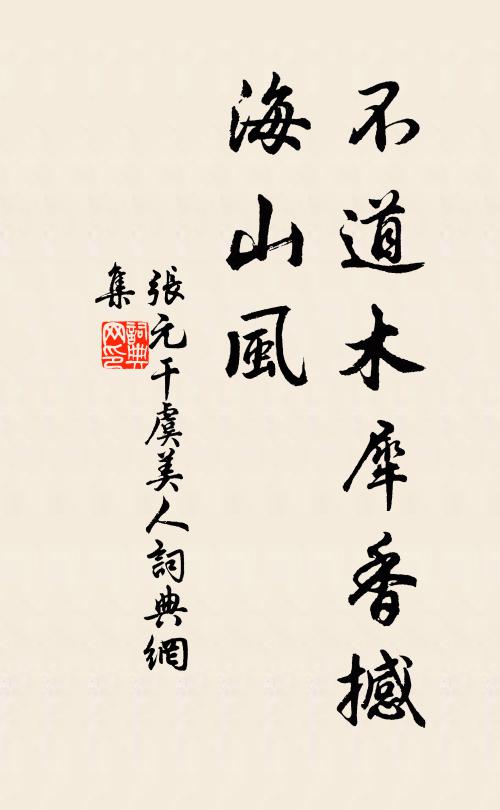 不道木犀香撼
海山風
張元干虞美人詞典網
集
詞典
网印